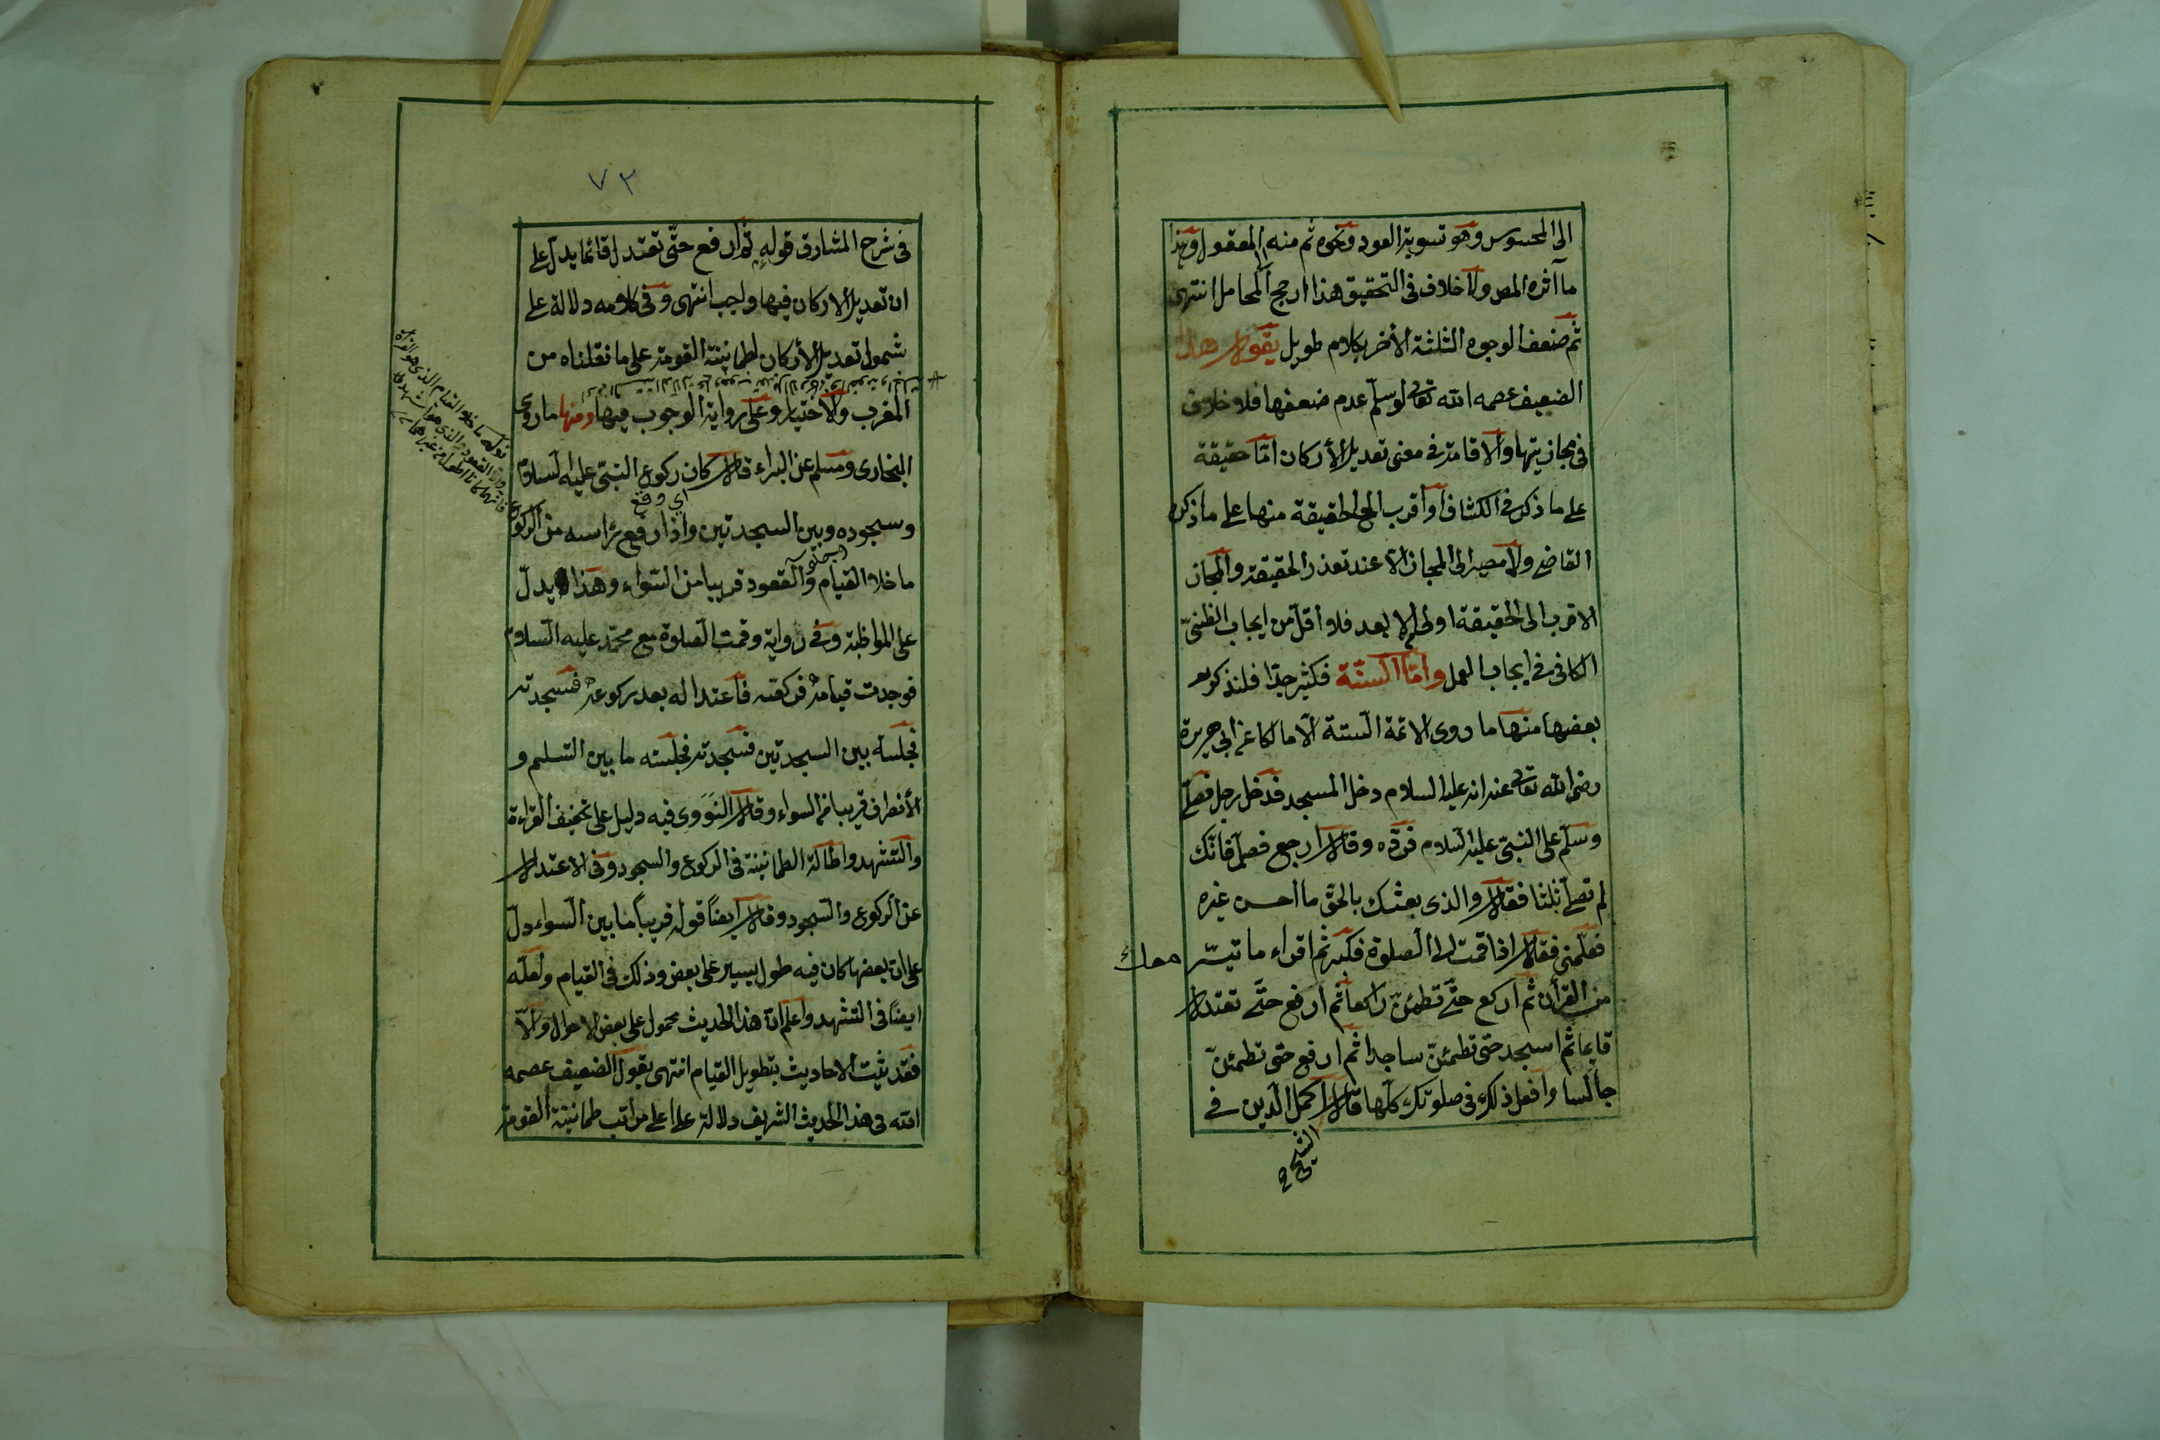 الى المحسوس وهو تسوية العود ونحوه ثم منه الى المعقول وهذا
ما آثره المص ولا خلاف فى التحقيق هذا ارجح المحامل انتهى
ثم ضعف الوجوه الثلثة الأخر بكلام طويل يقول هذا
الضعيف عصمه الله تعالى لو سلم عدم ضعفها فلا خلاف
فى مجازيتها والاقامة فى معنى تعديل الأركان امّا حقيقة
على ما ذكر فى الكشاف أو أقرب الى الحقيقة منها على ما ذكره
القاضى ولا مصير الى المجاز الا عند تعذر الحقيقة والمجاز
الاقرب الى الحقيقة اولى من الابعد فلا أقلّ من ايجاب الظنىّ
الكافى فى ايجاب العمل وامّا السنّة فكثير جدّا فلنذكر
بعضها منها ما روى الائمة الستة الّا مالكا عن ابى هريرة
رضى الله تعالى عنه انه عليه السلام دخل المسجد فدخل رجل فصلّى
وسلّم على النبىّ عليه السلام فردّه وقال ارجع فصلّ فانّك
لم تصلّ ثلثا فقال والذى بعثك بالحقّ ما أحسن غيره
فعلّمنى فقال اذا قمت الى الصلوة فكبر ثم اقراء ما تيسّر معك
من القرأن ثم اركع حتّى تطمئنّ راكعا ثم ارفع حتّى تعتدل
قايما ثم اسجد حتى تطمئنّ ساجدا ثم ارفع حتى تطمئنّ
جالسا وافعل ذلك فى صلوتك كلّها قال اكمل الدين فى
الشيخ
٧٣
فى شرح المشارق قوله ثم ارفع حتّى تعتدل قائما يدلّ على
ان تعديل الأركان فيها واجب انتهى وفى كلامه دلالة على
شمول تعديل الأركان لطمانينة القومة على ما نقلناه من
المغرب والاختيار وعلى رواية الوجوب فيها ومنها ما روى
البخارى ومسلم عن البراء قال كان ركوع النبىّ عليه السلام
اى وقع
وسجوده وبين السجدتين واذا رفع رأسه من الركوع
ما خلا القيام والقعود قريبا من السّواء وهذا يدلّ
على المواظبة وفى رواية رمقت الصلوة مع محمّد عليه السلام
فوجدت قيامه فركعته فاعتداله بعد ركوعه فسجدته
فجلسته بين السجدتين فسجدته فجلسته ما بين التسليم و
الأنصراف قريبا من السواء وقال النَوَوى فيه دليل على تخفيف القراءة
والتشهد واطالة الطمانينة فى الركوع والسجود وفى الاعتدال
عن الركوع والسجود وقال ايضاً قوله قريباً ما بين السّواء دلّ
على انّ بعضها كان فيه طول يسير على بعض وذلك فى القيام ولعلّه
ايضاً فى التشهد واعلم انّ هذا الحديث محمول على بعض الاحوال والّا
فقد ثبت الاحاديث بتطويل القيام انتهى يقول الضعيف عصمه
الله فى هذا الحديث الشريف دلالة على اعلى مراتب طمانينة القومة
قوله ما خلا القيام الذى هو القراءة